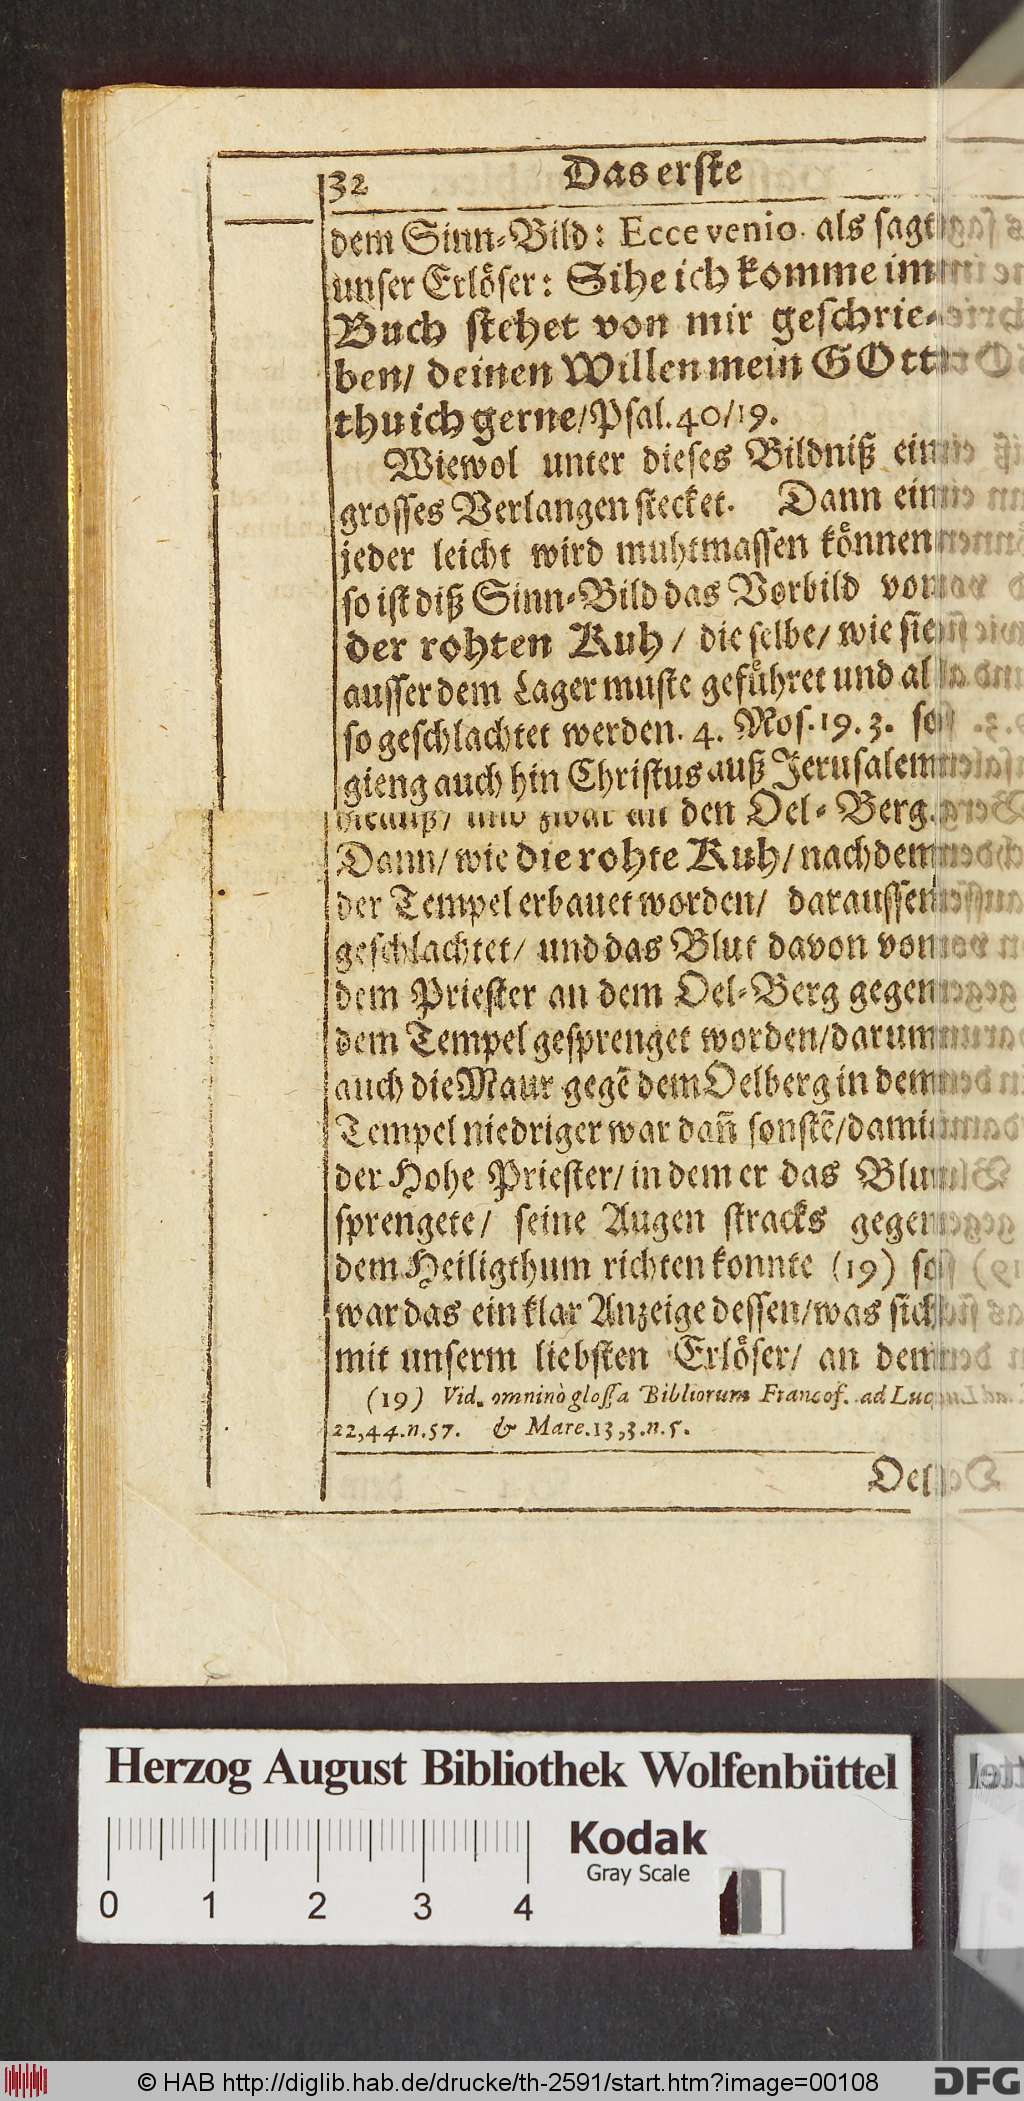 32 Das erste
dem Sinn-Bild: Ecce venio. als sagt
unser Erlöser: Sihe ich komme im
Buch stehet von mir geschrie-
ben/ deinen Willen mein GOtt
thu ich gerne/Psal. 40/19.
Wiewol unter dieses Bildniß ein
grosses Verlangen stecket. Dann ein
jeder leicht wird muhtmassen können
so ist diß Sinn-Bild das Vorbild von
der rohten Kuh/ die selbe/ wie sie
ausser dem Lager muste geführet und al
so geschlachtet werden. 4. Mos. 19. 3. so
gieng auch hin Christus auß Jerusalem
hinauß/ und zwar an den Oel-Berg.
Dann/ wie die rohte Kuh/ nachdem
der Tempel erbauet worden/ daraussen
geschlachtet/ und das Blut davon von
dem Priester an dem Oel-Berg gegen
dem Tempel gesprenget worden/darum
auch die Maur gegē dem Oelberg in dem
Tempel niedriger war dañ sonstē/dami
der Hohe Priester/ in dem er das Blu
sprengete/ seine Augen stracks gegen
dem Heiligthum richten konnte (19) so
war das ein klar Anzeige dessen/was sich
mit unserm liebsten Erlöser/ an dem
(19) Vid. omninò glossa Bibliorum Francof. ad Luc
22,44.n.57. & Marc.13,3.n.5.
Oel
Herzog August Bibliothek Wolfenbüttel
Kodak
Gray Scale
0 1 2 3 4
© HAB http://diglib.hab.de/drucke/th-2591/start.htm?image=00108
DFG